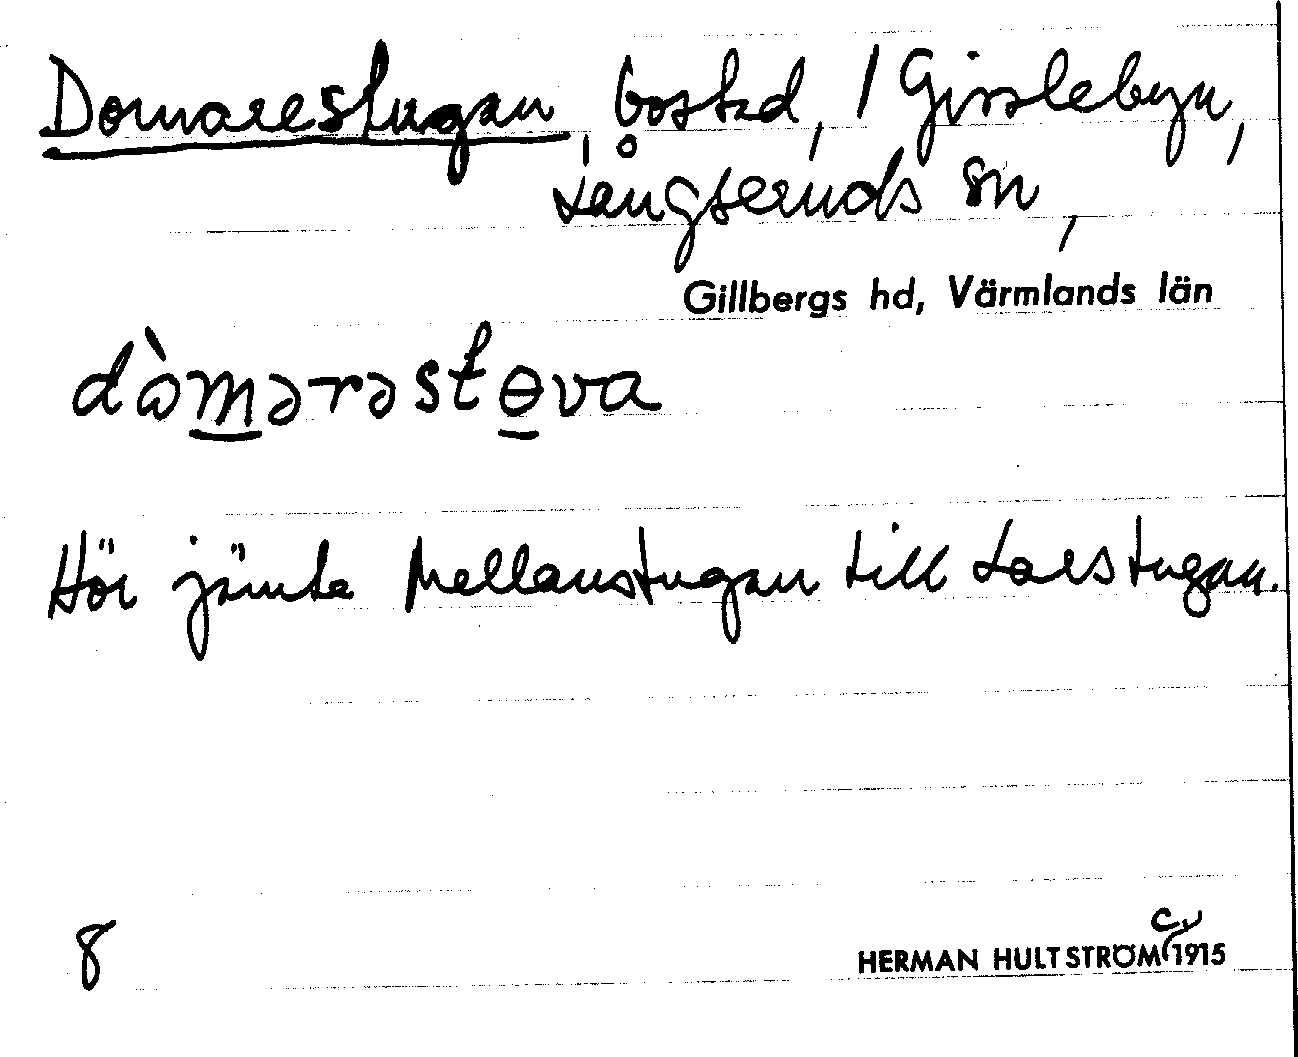 Domarestugan, bostad, i Gisslebyn,
Långseruds sn,
Gillbergs hd, Värmlands län
dòmərəstɵva
Hör jämte Mellanstugan till Larstugan.
8
HERMAN HULTSTRÖM cv 1915